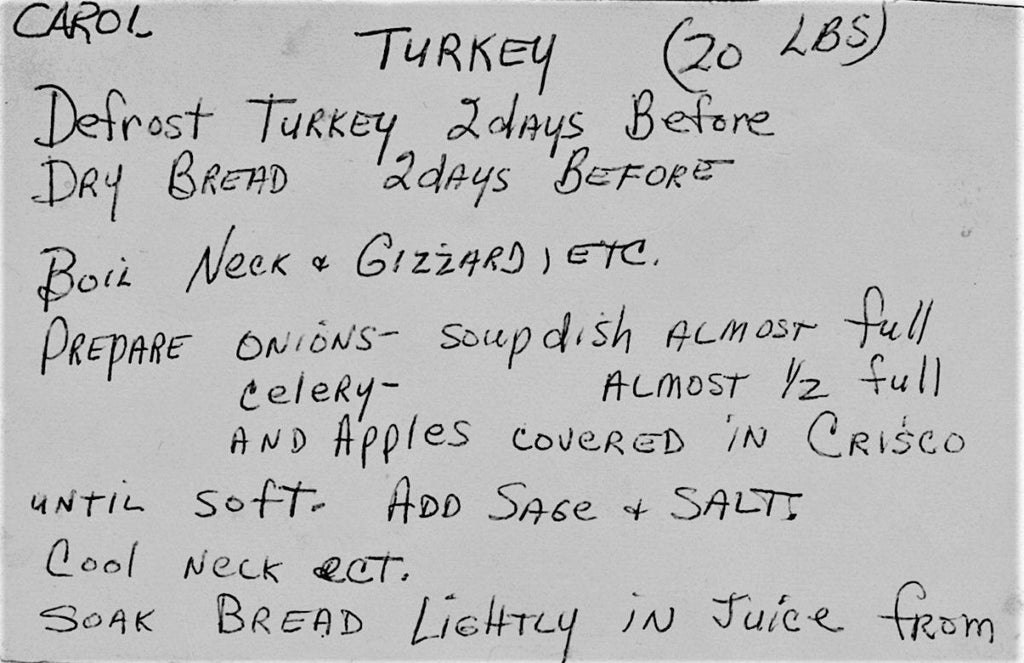 CAROL
TURKEY (20 LBS)
Defrost TURKEY 2dAYS Before
DRY BREAD 2dAYS BEFORE
BOIL NECK & GIZZARD, ETC.
PREPARE ONIONS- soupdish ALMOST full
celery- ALMOST 1/2 full
AND Apples COVERED IN CRISCO
UNTIL SOFT. ADD SAGE & SALT.
Cool NECK ECT.
SOAK BREAD LIGHTLY IN JUICE FROM